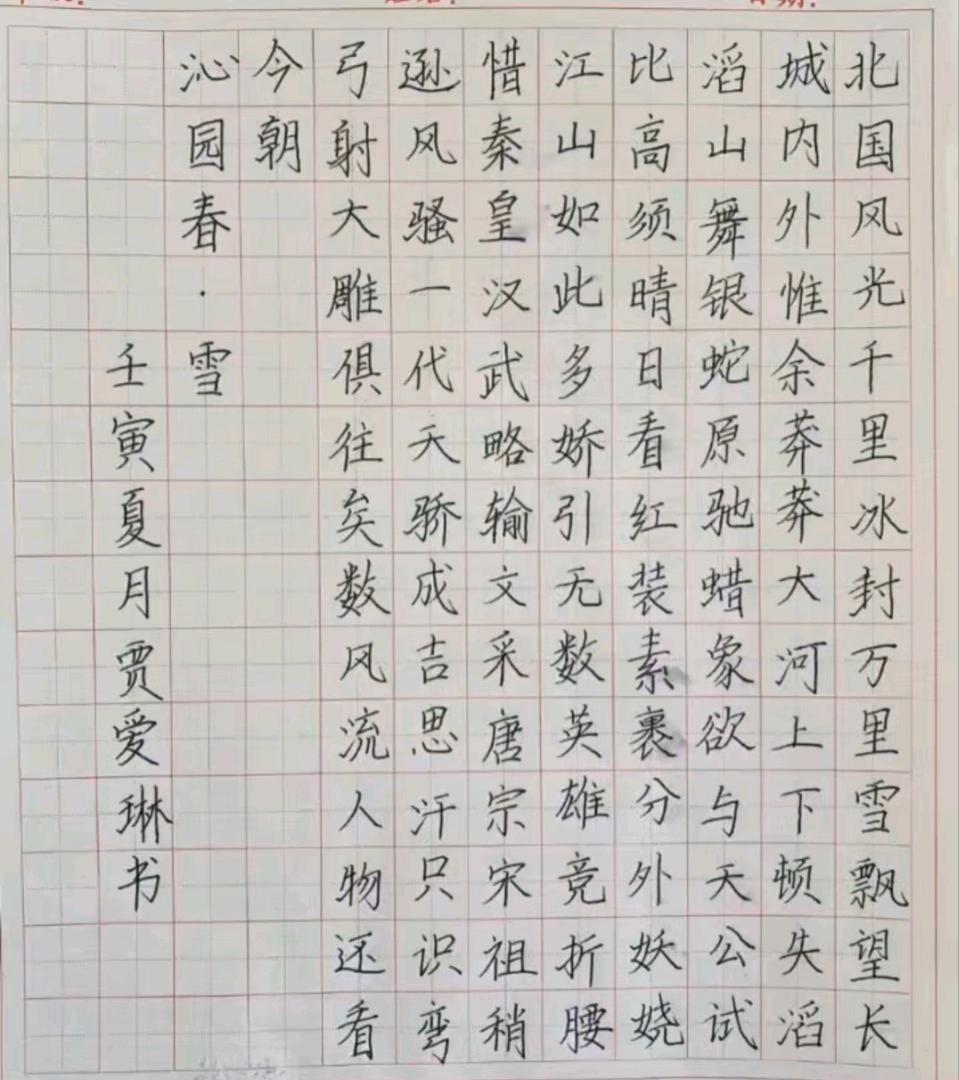 北国风光千里冰封万里雪飘望长
城内外惟余莽莽大河上下顿失滔
滔山舞银蛇原驰蜡象欲与天公试
比高须晴日看红装素裹分外妖娆
江山如此多娇引无数英雄竞折腰
惜秦皇汉武略输文采唐宗宋祖稍
逊风骚一代天骄成吉思汗只识弯
弓射大雕俱往矣数风流人物还看
今朝
沁园春·雪
壬寅夏月贾爱琳书